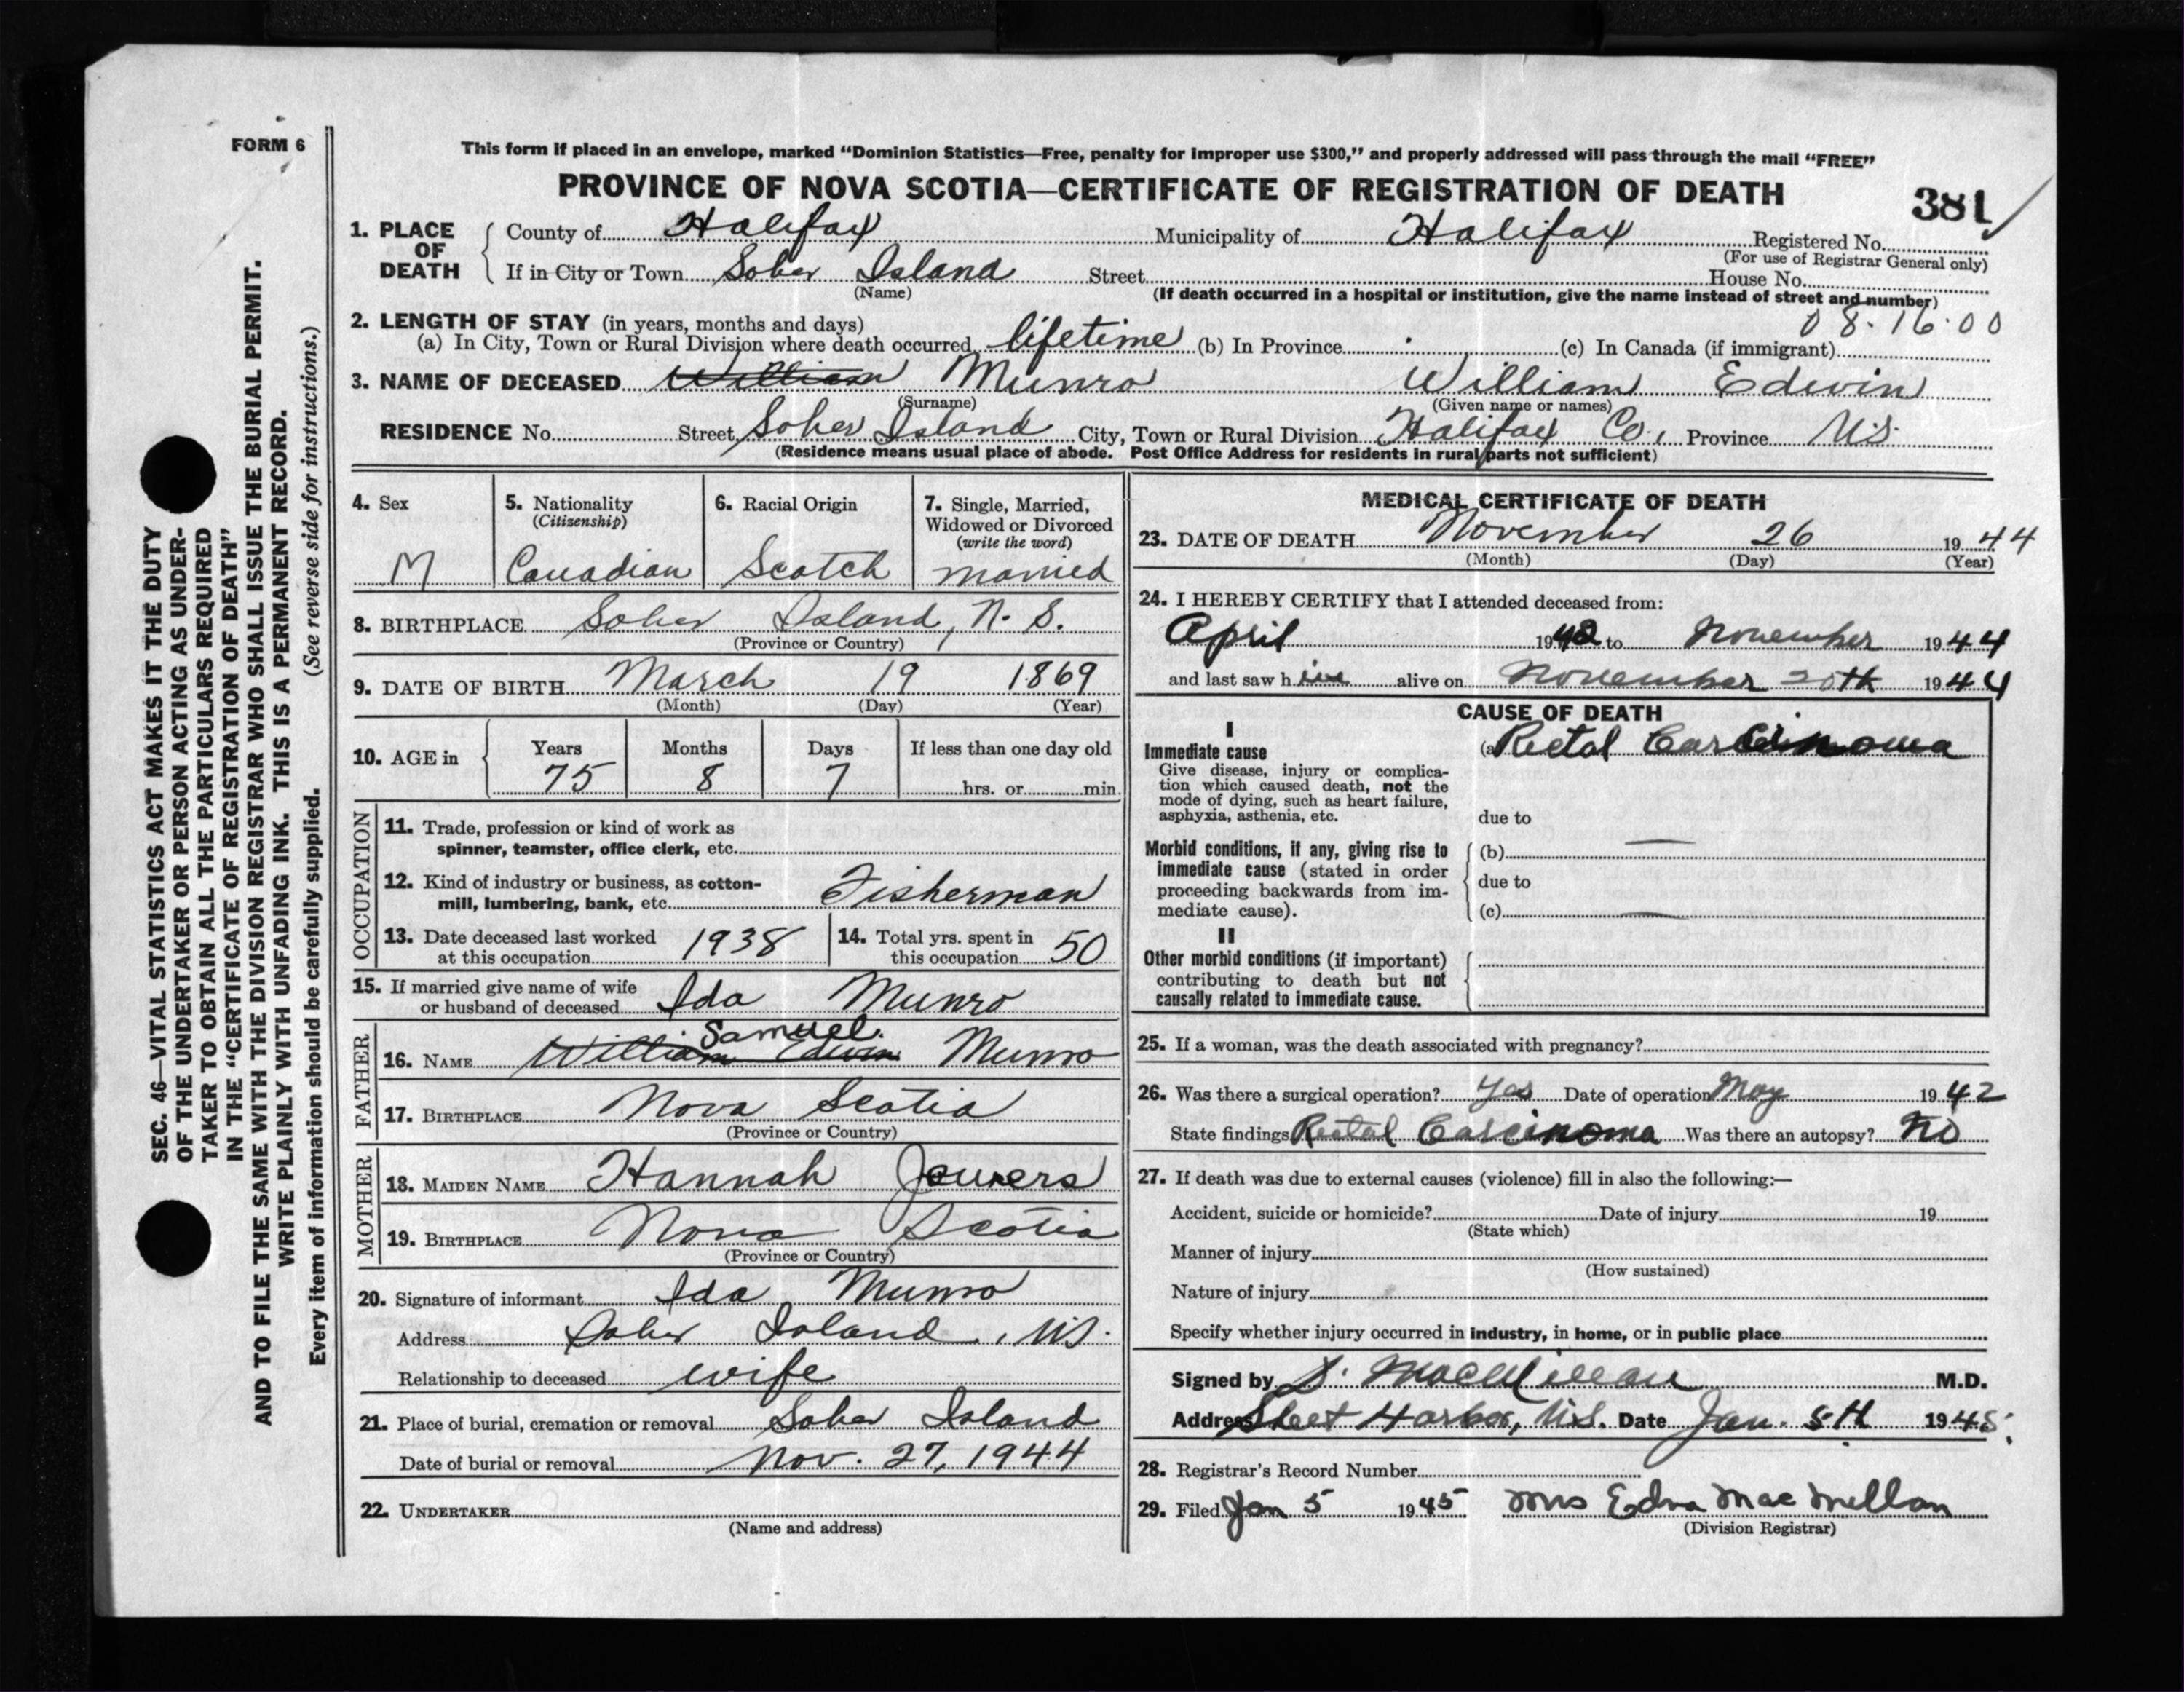 FORM 6
This form if placed in an envelope, marked “Dominion Statistics—Free, penalty for improper use $300,” and properly addressed will pass through the mail “FREE”
PROVINCE OF NOVA SCOTIA—CERTIFICATE OF REGISTRATION OF DEATH
381
1. PLACE OF DEATH
County of Halifax Municipality of Halifax Registered No.
(For use of Registrar General only)
If in City or Town Sober Island Street House No.
(Name)
(If death occurred in a hospital or institution, give the name instead of street and number)
08·16·00
2. LENGTH OF STAY (in years, months and days)
(a) In City, Town or Rural Division where death occurred lifetime (b) In Province (c) In Canada (if immigrant)
3. NAME OF DECEASED William Munro William Edwin
(Surname) (Given name or names)
RESIDENCE No. Street Sober Island City, Town or Rural Division Halifax Co., Province N.S.
(Residence means usual place of abode. Post Office Address for residents in rural parts not sufficient)
4. Sex
M
5. Nationality
(Citizenship)
Canadian
6. Racial Origin
Scotch
7. Single, Married,
Widowed or Divorced
(write the word)
married
8. BIRTHPLACE Sober Island, N.S.
(Province or Country)
9. DATE OF BIRTH March 19 1869
(Month) (Day) (Year)
10. AGE in
Years Months Days If less than one day old
75 8 7 hrs. or min.
OCCUPATION
11. Trade, profession or kind of work as
spinner, teamster, office clerk, etc.
12. Kind of industry or business, as cotton-
mill, lumbering, bank, etc. Fisherman
13. Date deceased last worked
at this occupation 1938
14. Total yrs. spent in
this occupation 50
15. If married give name of wife
or husband of deceased Ida Munro
FATHER
Samuel
16. NAME William Edwin Munro
17. BIRTHPLACE Nova Scotia
(Province or Country)
MOTHER
18. MAIDEN NAME Hannah Jowers
19. BIRTHPLACE Nova Scotia
(Province or Country)
20. Signature of informant Ida Munro
Address Sober Island, N.S.
Relationship to deceased wife
21. Place of burial, cremation or removal Sober Island
Date of burial or removal Nov. 27, 1944
22. UNDERTAKER
(Name and address)
MEDICAL CERTIFICATE OF DEATH
23. DATE OF DEATH November 26 1944
(Month) (Day) (Year)
24. I HEREBY CERTIFY that I attended deceased from:
April 1942 to November 1944
and last saw him alive on November 20th 1944
CAUSE OF DEATH
I
Immediate cause
Give disease, injury or complica-
tion which caused death, not the
mode of dying, such as heart failure,
asphyxia, asthenia, etc.
(a) Rectal Carcinoma
due to
Morbid conditions, if any, giving rise to
immediate cause (stated in order
proceeding backwards from im-
mediate cause).
(b) —
due to
(c) —
II
Other morbid conditions (if important)
contributing to death but not
causally related to immediate cause.
25. If a woman, was the death associated with pregnancy?
26. Was there a surgical operation? Yes Date of operation May 1942
State findings Rectal Carcinoma Was there an autopsy? No
27. If death was due to external causes (violence) fill in also the following:—
Accident, suicide or homicide? Date of injury 19
(State which)
Manner of injury
(How sustained)
Nature of injury
Specify whether injury occurred in industry, in home, or in public place
Signed by D. MacMillan M.D.
Address Sheet Harbor, N.S. Date Jan. 5th 1945.
28. Registrar's Record Number
29. Filed Jan 5 1945 Mrs Edna MacMillan
(Division Registrar)
SEC. 46—VITAL STATISTICS ACT MAKES IT THE DUTY
OF THE UNDERTAKER OR PERSON ACTING AS UNDER-
TAKER TO OBTAIN ALL THE PARTICULARS REQUIRED
IN THE “CERTIFICATE OF REGISTRATION OF DEATH”
AND TO FILE THE SAME WITH THE DIVISION REGISTRAR WHO SHALL ISSUE THE BURIAL PERMIT.
WRITE PLAINLY WITH UNFADING INK. THIS IS A PERMANENT RECORD.
Every item of information should be carefully supplied. (See reverse side for instructions.)